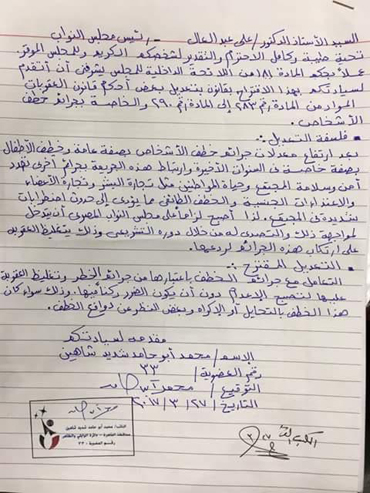 السيد الأستاذ الدكتور / على عبد العال - رئيس مجلس النواب
تحية طيبة وكامل الاحترام والتقدير لشخصكم الكريم وللمجلس الموقر.
عملاً بحكم المادة ١٨١ من اللائحة الداخلية للمجلس يشرفنى أن أتقدم
لسيادتكم بهذا الاقتراح بقانون بتعديل بعض أحكام قانون العقوبات
المواد من المادة رقم ٢٨٣ إلى المادة رقم ٢٩٠ والخاصة بجرائم خطف
الأشخاص.
• فلسفة التعديل :-
بعد ارتفاع معدلات جرائم خطف الأشخاص بصفة عامة وخطف الأطفال
بصفة خاصة فى السنوات الأخيرة وارتباط هذه الجريمة بجرائم أخرى تهدد
أمن وسلامة المجتمع وحياة المواطنين مثل تجارة البشر وتجارة الأعضاء
والاعتداءات الجنسية والخطف الطائفى مما يؤدى إلى حدوث اضطرابات
شديدة فى المجتمع. لذا أصبح لزاماً على مجلس النواب المصرى أن يتدخل
لمواجهة ذلك والتصدى له من خلال دوره التشريعى وذلك بتغليظ العقوبة
على ارتكاب هذه الجرائم لردعها.
• التعديل المقترح :-
التعامل مع جرائم الخطف باعتبارها من جرائم الخطر وتغليظ العقوبة
عليها لتصبح الإعدام دون أن يكون الضرر ركناً فيها. وذلك سواء كان
هذا الخطف بالتحايل أو الإكراه وبغض النظر عن دوافع الخطف.
مقدمه لسيادتكم
الاسم / محمد أبو حامد شديد شاهين
رقم العضوية / ٣٣
التوقيع / محمد أبو حامد
التاريخ / ٢٧ / ٣ / ٢٠١٧
النائب / محمد أبو حامد شديد شاهين
رقم العضوية - ٣٣